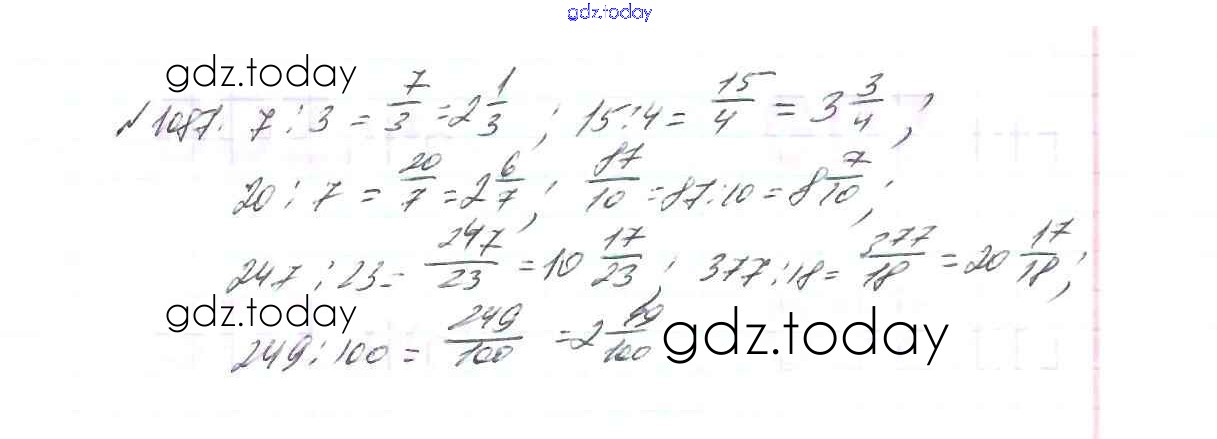 gdz.today
gdz.today
№1087. 7 : 3 = 7/3 = 2 1/3 ; 15 : 4 = 15/4 = 3 3/4 ;
20 : 7 = 20/7 = 2 6/7 ; 87/10 = 87 : 10 = 8 7/10 ;
247 : 23 = 247/23 = 10 17/23 ; 377 : 18 = 377/18 = 20 17/18 ;
gdz.today
249 : 100 = 249/100 = 2 49/100
gdz.today